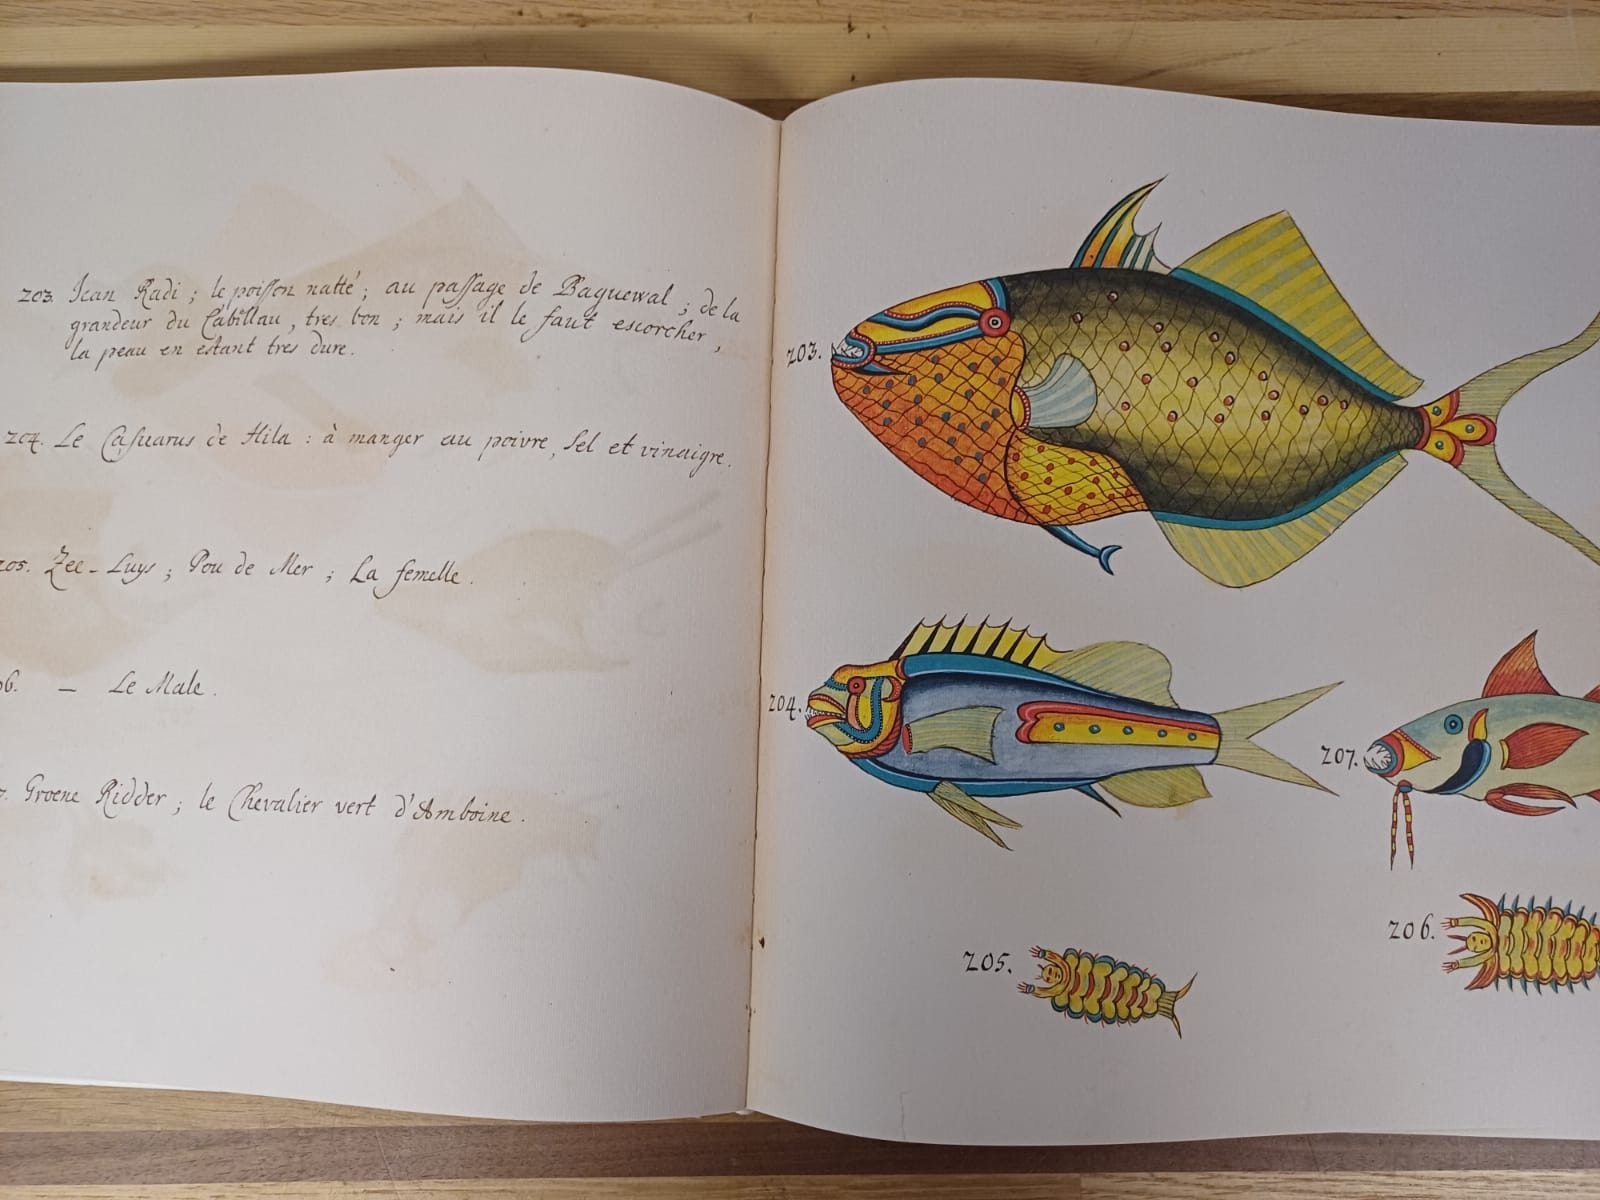 203. Jean Radi ; le poisson natté ; au passage de Baguewal ; de la
grandeur du Cabillau, tres bon ; mais il le faut escorcher,
la peau en estant tres dure.
204. Le Casuarus de Hila : à manger au poivre, sel et vinaigre.
205. Zee-Luys ; Pou de Mer ; La femelle.
06. — Le Male.
7. Groene Ridder ; le Chevalier vert d'Amboine.
203.
204.
207.
206.
205.